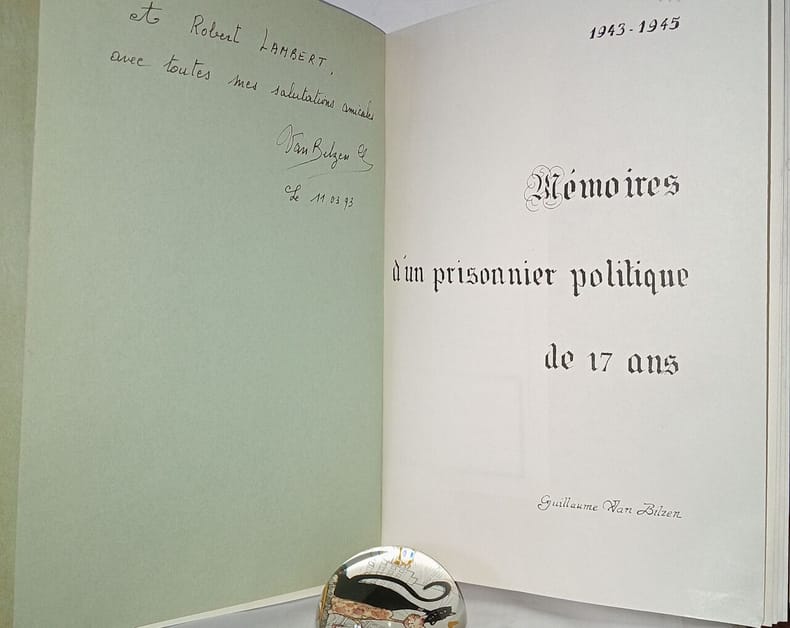 et Robert LAMBERT,
avec toutes mes salutations amicales
Van Bilzen G
Le 11 03 93
1943-1945
Mémoires
d'un prisonnier politique
de 17 ans
Guillaume Van Bilzen